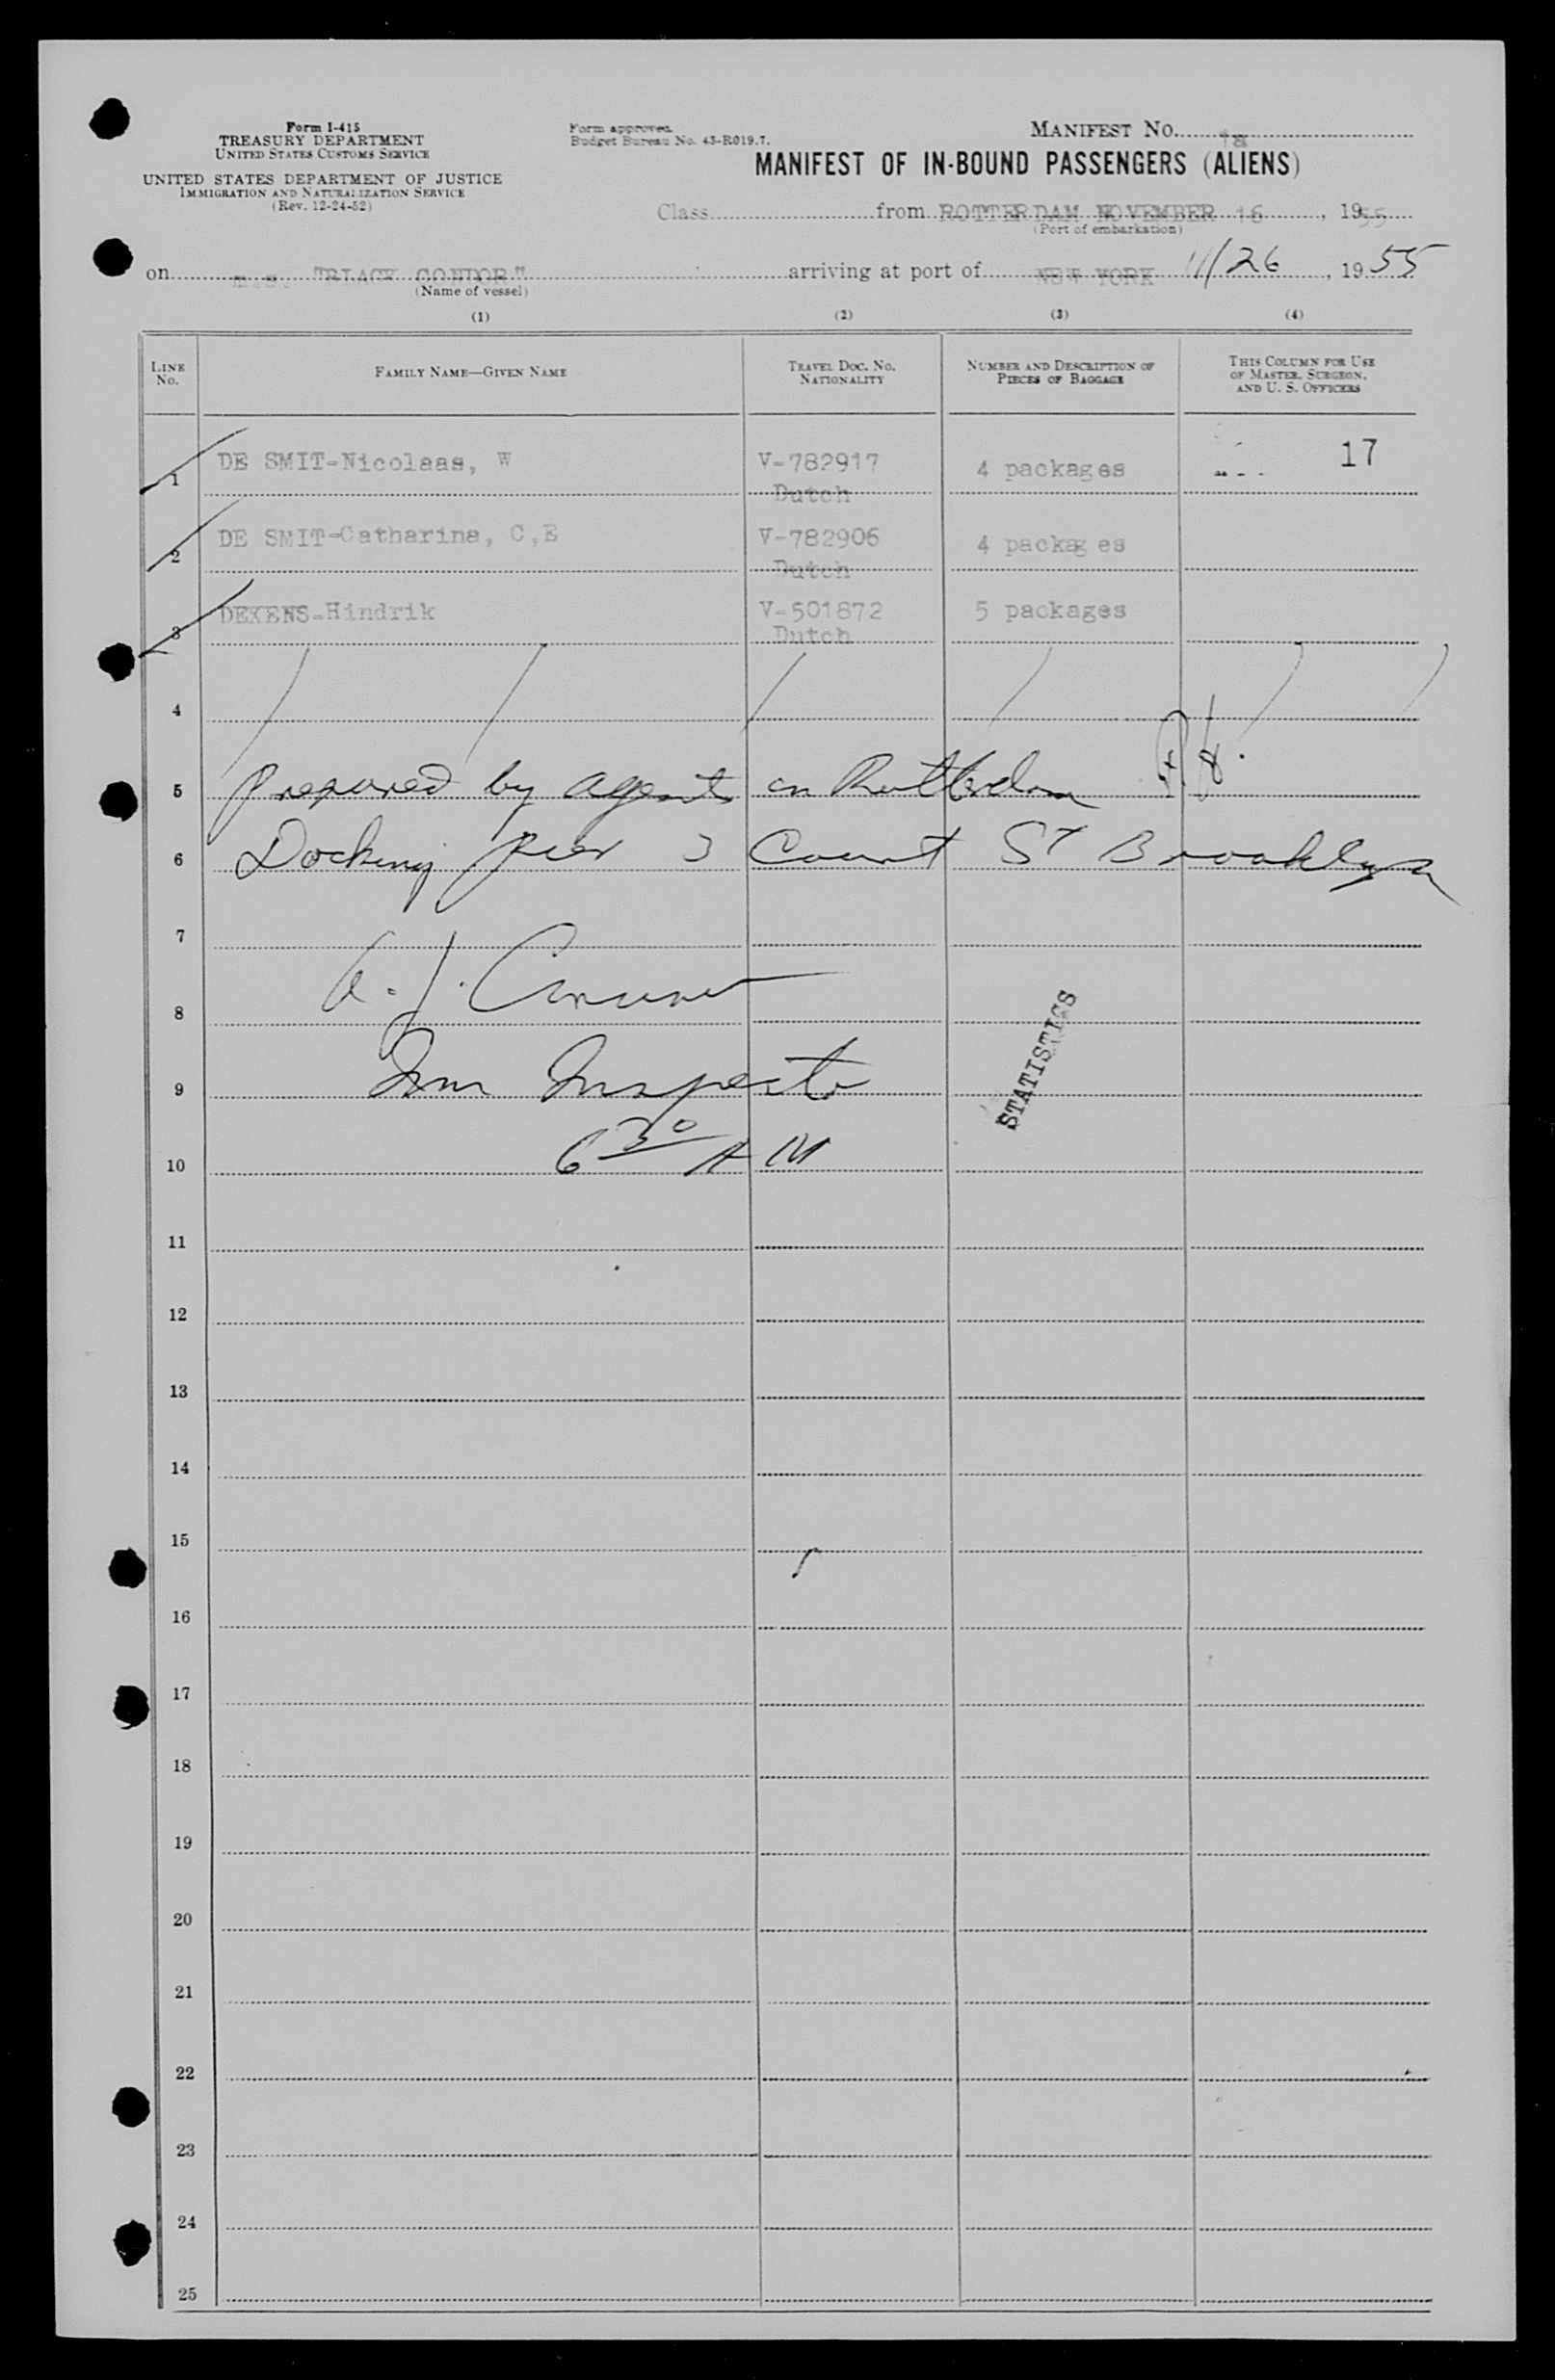 Form I-415
TREASURY DEPARTMENT
UNITED STATES CUSTOMS SERVICE
UNITED STATES DEPARTMENT OF JUSTICE
IMMIGRATION AND NATURALIZATION SERVICE
(Rev. 12-24-52)
Form approved.
Budget Bureau No. 43-R019.7.
MANIFEST NO. 1a
MANIFEST OF IN-BOUND PASSENGERS (ALIENS)
Class from ROTTERDAM NOVEMBER 16, 1955
(Port of embarkation)
on m.s. "BLACK CONDOR" arriving at port of NEW YORK 11/26, 1955
(Name of vessel)
(1) (2) (3) (4)
LINE NO. FAMILY NAME—GIVEN NAME TRAVEL DOC. NO. NATIONALITY NUMBER AND DESCRIPTION OF PIECES OF BAGGAGE THIS COLUMN FOR USE OF MASTER, SURGEON, AND U. S. OFFICERS
1 DE SMIT-Nicolaas, W V-782917 4 packages 17
Dutch
2 DE SMIT-Catharina, C,E V-782906 4 packages
Dutch
3 DEKENS-Hindrik V-501872 5 packages
Dutch
4
5 Prepared by agents in Rotterdam
6 Docking pier 3 Court St Brooklyn
7
8 A. J.
9 Imm Inspector
STATISTICS
10 6 30 AM
11
12
13
14
15
16
17
18
19
20
21
22
23
24
25